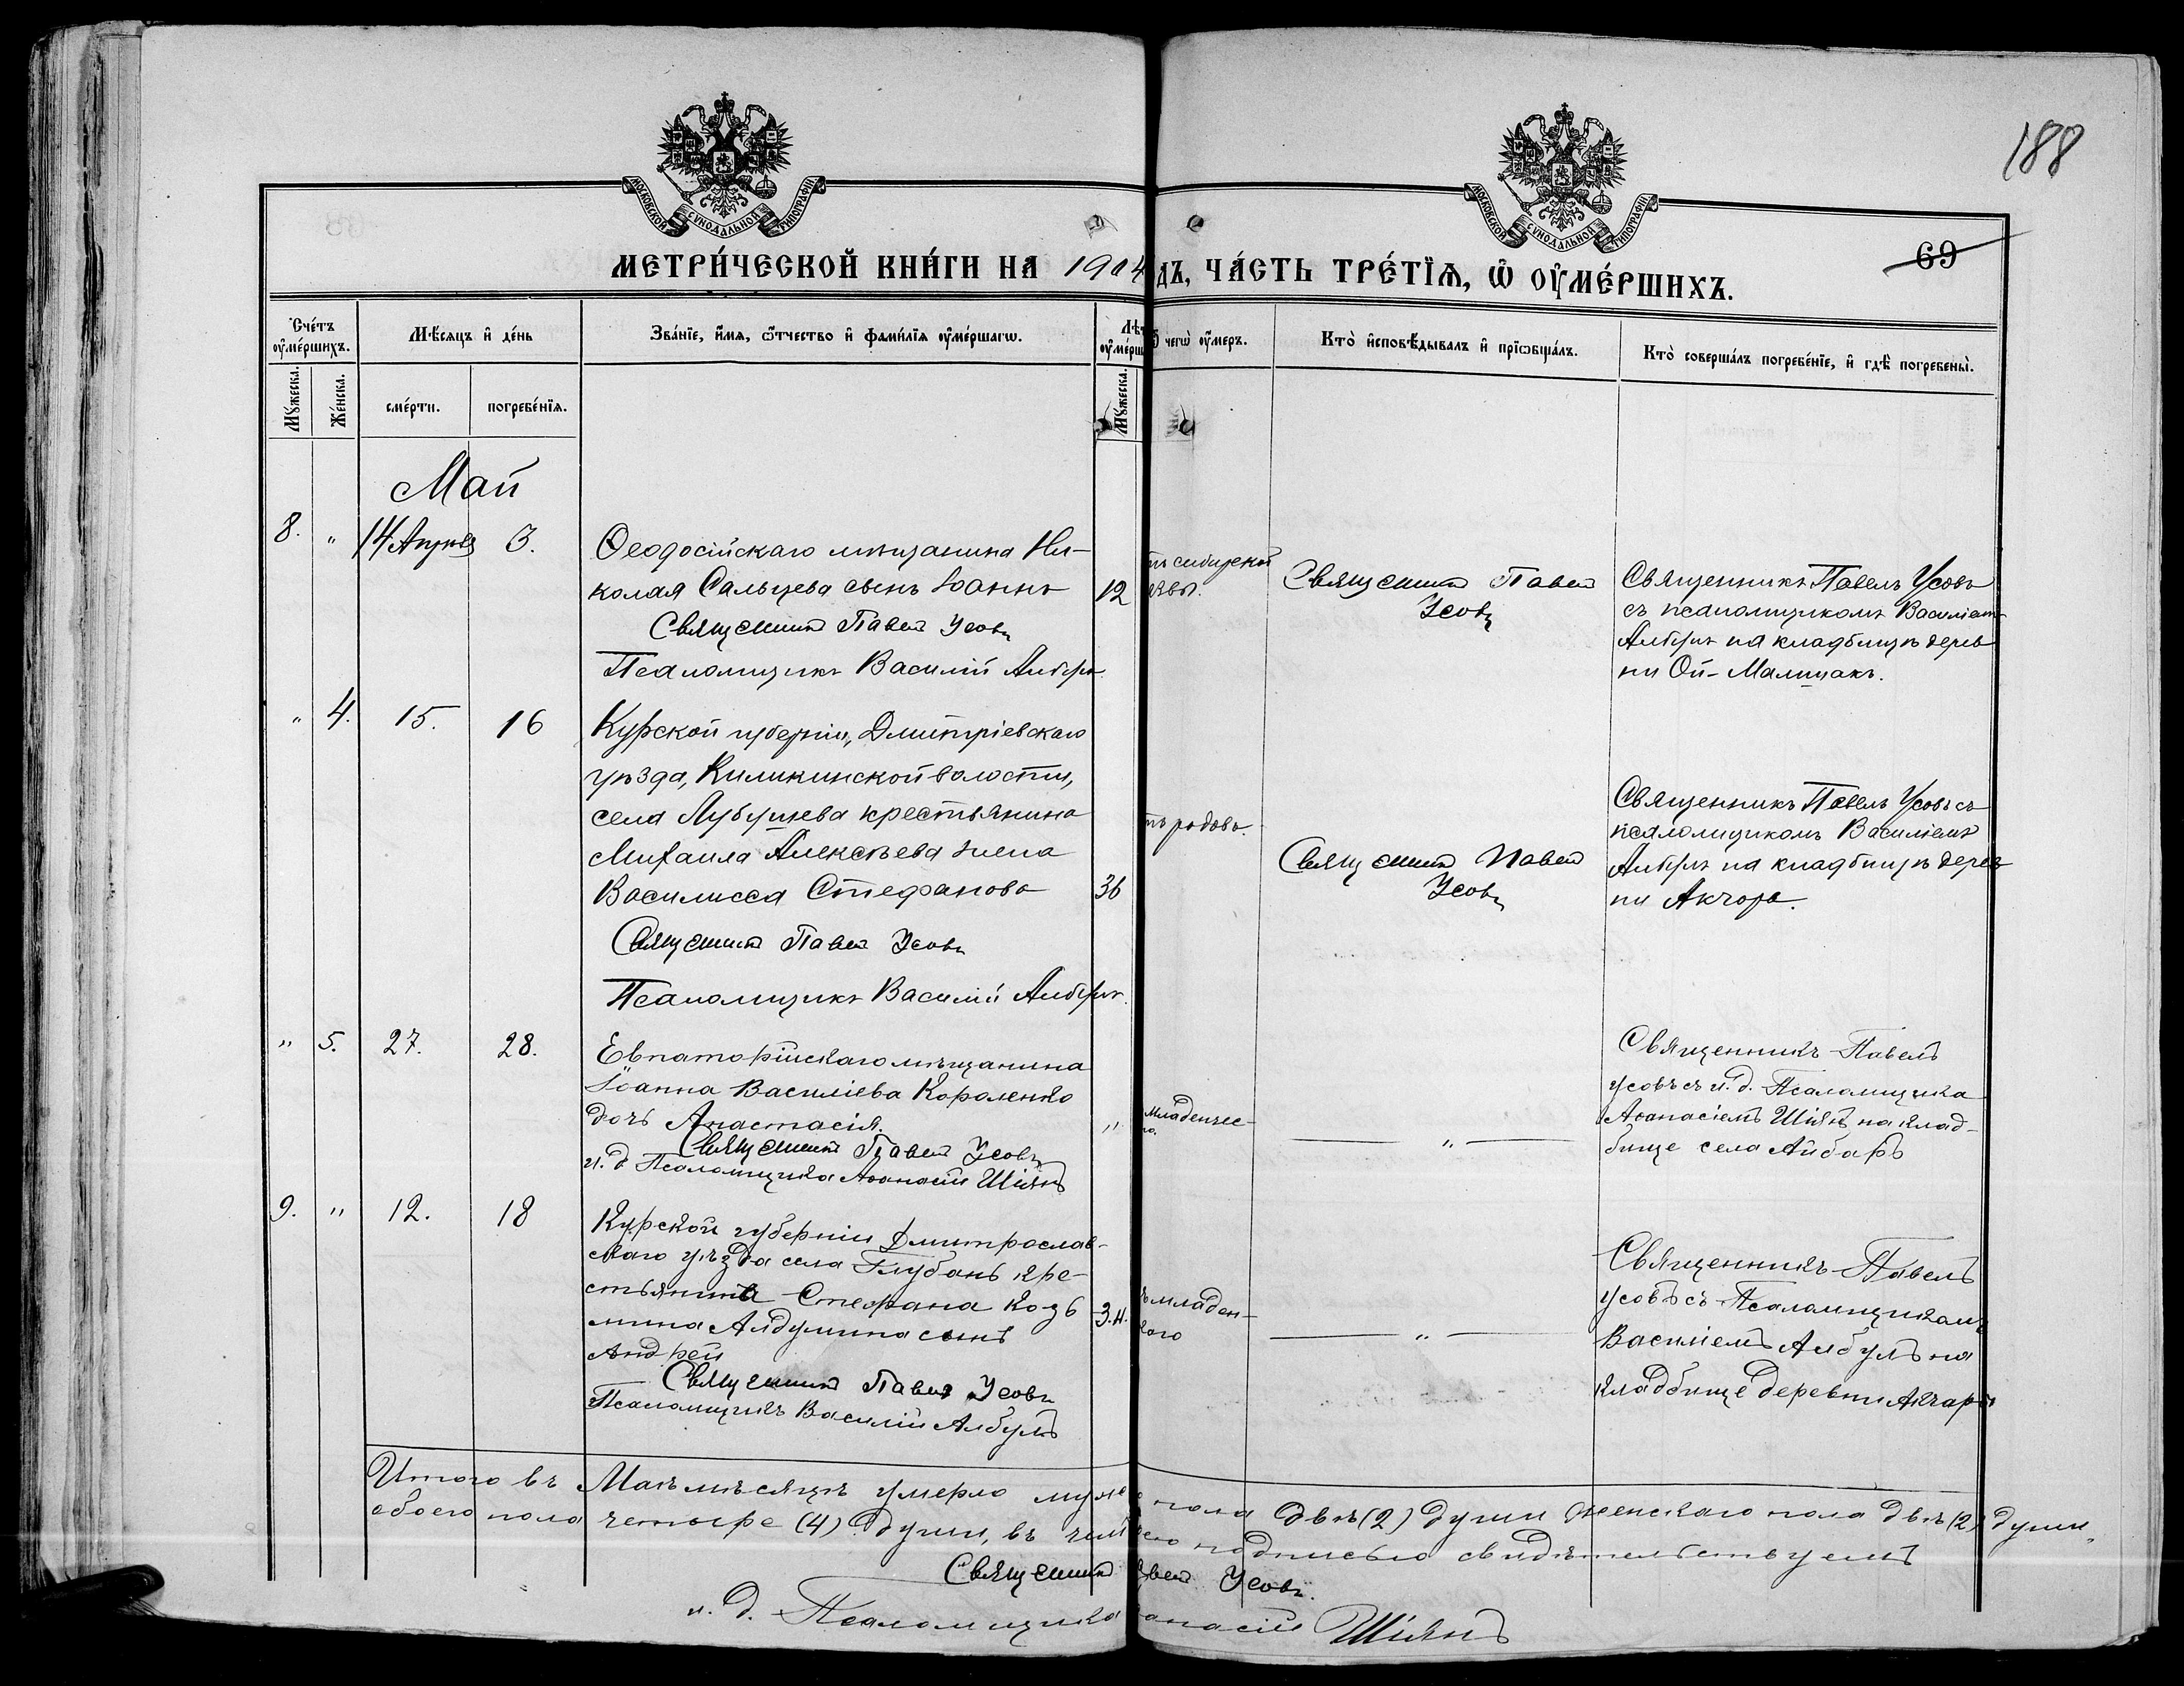 188
МОСКОВСКОЙ СѴНОДАЛЬНОЙ ТИПОГРАФІИ
МОСКОВСКОЙ СѴНОДАЛЬНОЙ ТИПОГРАФІИ
69
МЕТРИ́ЧЕСКОЙ КНИ́ГИ НА 1904
дъ, ЧА́СТЬ ТРЕ́ТІѦ, Ѡ ОУ҆МЕ́РШИХЪ.
Сче́тъ оу҆ме́ршихъ.
Мѣ́сяцъ и҆ де́нь
Зва́нїе, и҆́мя, ѻ҆́тчество и҆ фами́лїя оу҆ме́ршагѡ.
Лѣт
оу҆ме́рш
чегѡ̀ оу҆́меръ.
Кто̀ и҆сповѣ́дывалъ и҆ прїѡбща́лъ.
Кто̀ соверша́лъ погребе́нїе, и҆ гдѣ̀ погребены̀.
Му́жеска.
Же́нска.
сме́рти.
погребе́нїя.
Му́жеска.
Май
8. " 14 Апрѣля 3.
Ѳеодосійскаго мѣщанина Ни-
колая Сальцева сынъ Іоаннъ 12
Священникъ Павелъ Усовъ
Псаломщикъ Василій Албулъ
тъ сибирской
язвы.
Священникъ Павелъ
Усовъ
Священникъ Павелъ Усовъ
съ псаломщикомъ Василіемъ
Албулъ на кладбищѣ дерев
ни Ой-Малшакъ.
" 4. 15. 16
Курской губерніи, Дмитріевскаго
уѣзда, Киликинской волости,
села Лубушева крестьянина
Михаила Алексѣева жена
Василисса Стефанова 36
Священникъ Павелъ Усовъ
Псаломщикъ Василій Албулъ
тъ родовъ.
Священникъ Павелъ
Усовъ
Священникъ Павелъ Усовъ съ
псаломщикомъ Василіемъ
Албулъ на кладбищѣ дерев
ни Акчора.
" 5. 27. 28.
Евпаторійскаго мѣщанина
Іоанна Василіева Короленко
дочь Анастасія. "
Священникъ Павелъ Усовъ
и. д Псаломщика Аѳанасій Шіянъ
Младенчес-
го.
"
Священникъ Павелъ
Усовъ съ и. д. Псаломщика
Аѳанасіемъ Шіянъ на клад-
бище села Айбаръ
9. " 12. 18
Курской губерніи Дмитрослав-
скаго уѣзда села Глубань кре-
стьянина Стефана Козь
мина Алдумина сынъ 3.н.
Андрей
Священникъ Павелъ Усовъ
Псаломщикъ Василій Албулъ
ъ младен-
каго
"
Священникъ Павелъ
Усовъ съ Псаломщикомъ
Василіемъ Албулъ на
кладбище деревни Акчары
Итого въ Маѣ мѣсяцѣ умерло муже пола двѣ (2) души женскаго пола двѣ (2) души,
обоего пола четыре (4) души, въ чемъ подписью свидѣтельствуемъ
Священникъ Павелъ Усовъ.
и. д. Псаломщика анасій Шіянъ